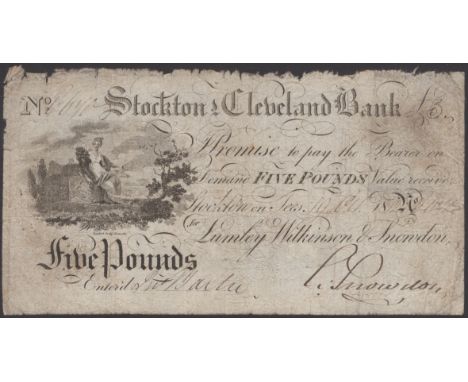 No Stockton & Cleveland Bank £5.
I Promise to pay the Bearer on
Demand FIVE POUNDS Value received
Stockton on Tees 18
For Lumley Wilkinson & Snowdon,
Five Pounds
Enter'd
R. Snowdon